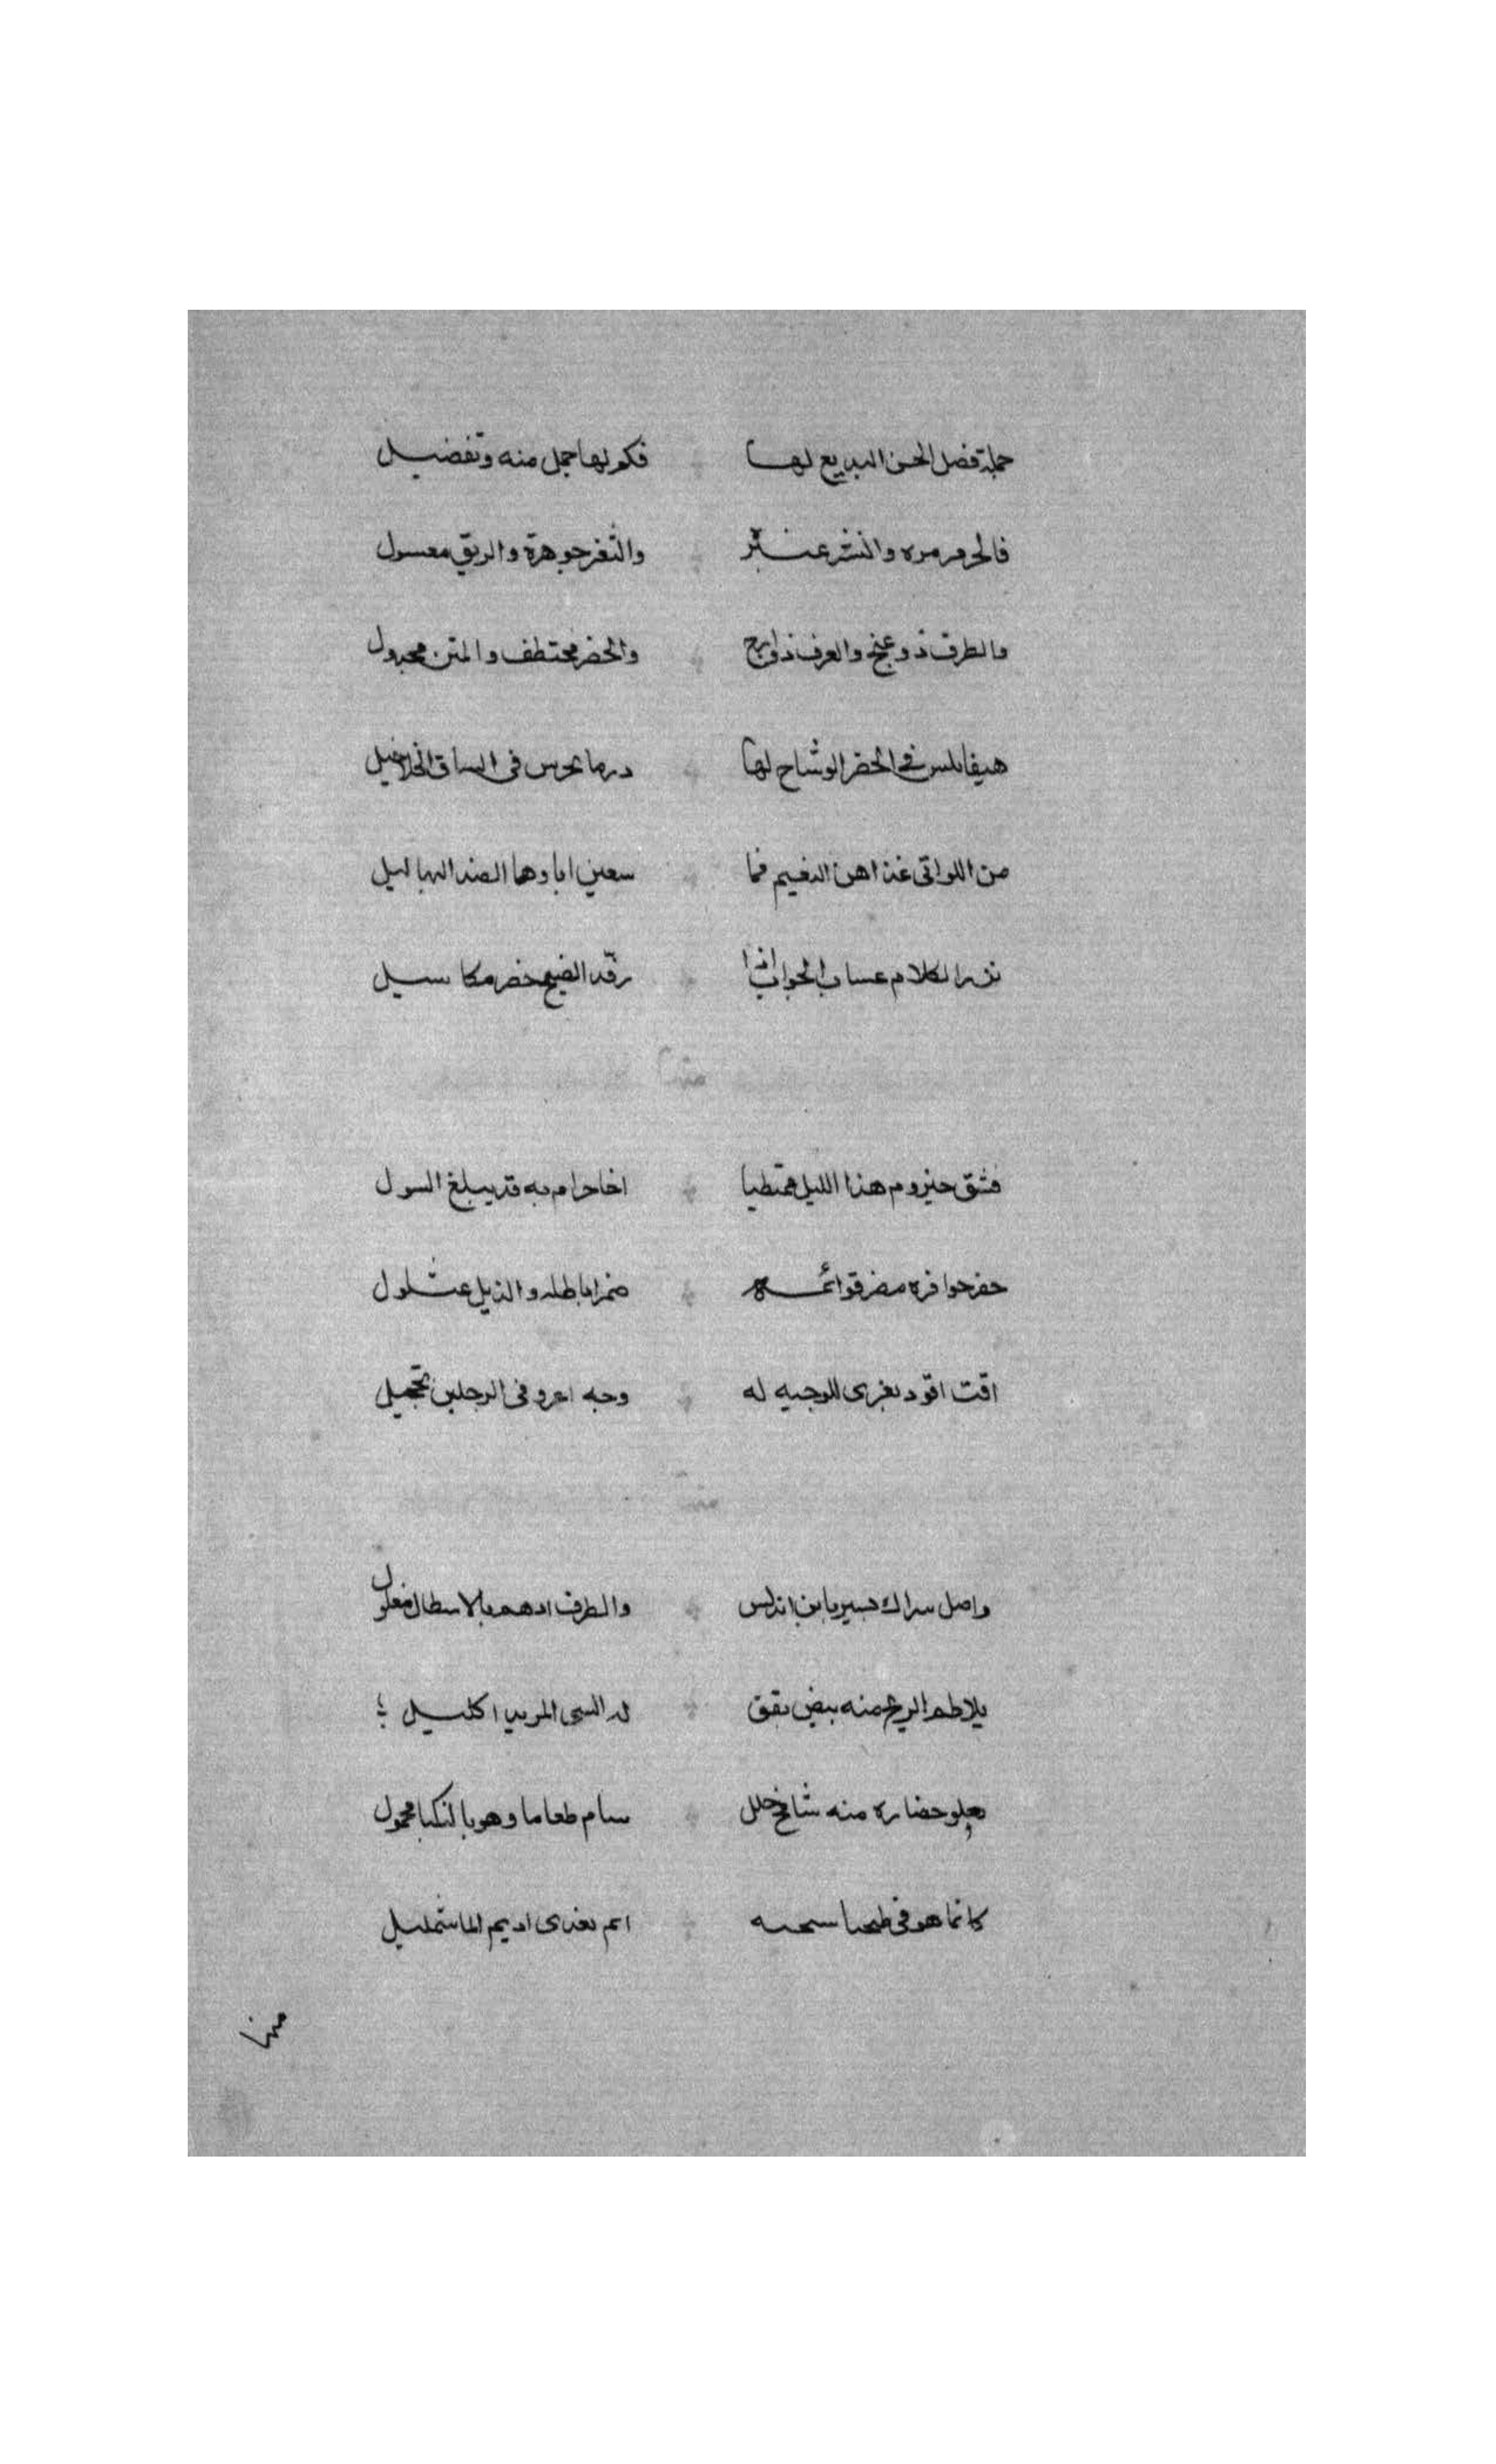 جملة فصل الحسن البديع لها فكم لها جمل منه وتفضيل
فالنحر مرمره والنشر عنبر والثغر جوهرة والريق معسول
والطرف ذو غنج والعرف ذو ارج والخصر مختطف والمتن مجدول
هيفا في الخصر الوشاح لها درما تخرس في الساق الخلاخيل
من اللواتي غذاهن النعيم فما اباوها الصيد البهاليل
نزر الكلام الجواب اذا رقد الضحى مكاسيل
منها
فشق حيزوم هذا الليل ممتطيا اخا حزام به قد يبلغ السول
حفر حوافره قوائمه والذيل عثلول
اقب اقود يعزى للوجيه له وجه اغر وفي الرجلين تحجيل
منها
واصل سراك بسير يا ابن اندلس والطرف ادهم بالاسطال مغلول
يلاطم الريح منه يقق له من اكليل
يعلو حضاره منه شامخ جلل سام طفا وهو بالنكبا محمول
كانما هو في ايم يفرى اديم الما شمليل
منها